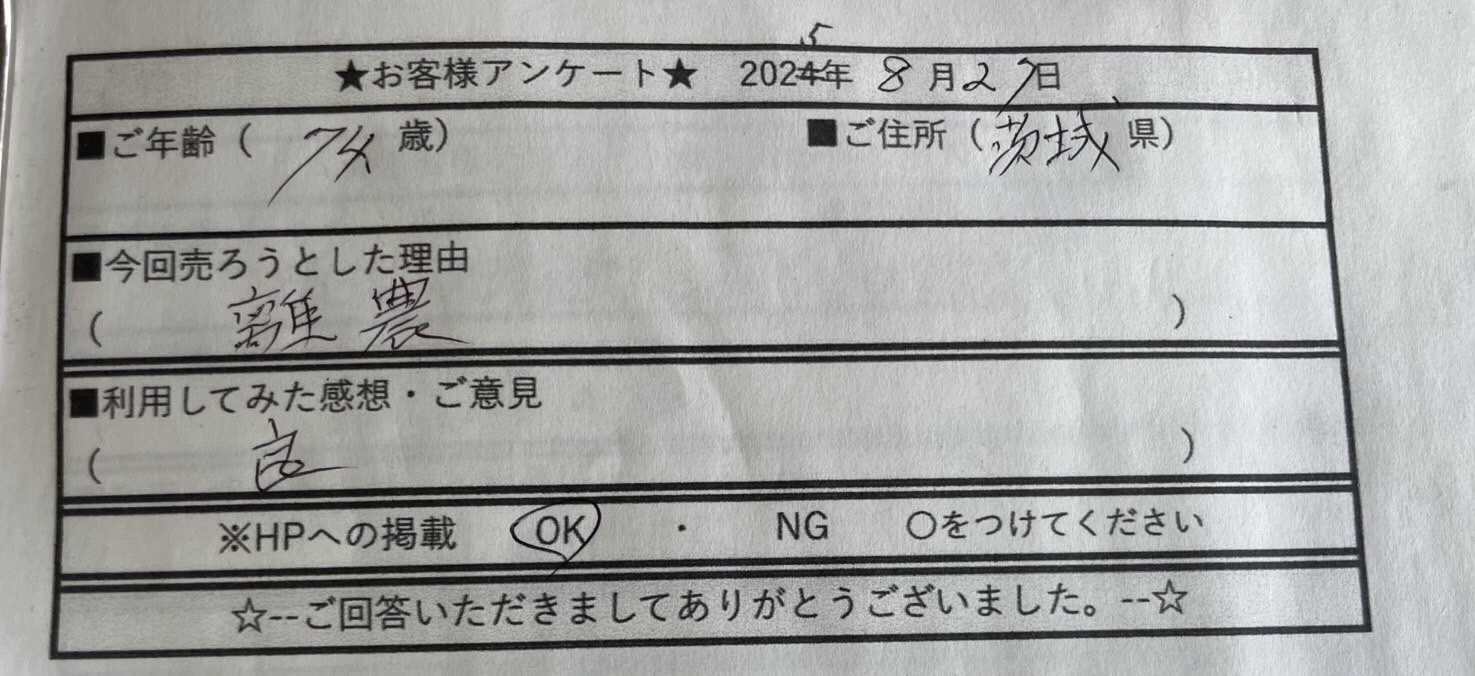 ★お客様アンケート★ 2025年 8月27日
■ご年齢( 74歳) ■ご住所(茨城県)
■今回売ろうとした理由
( 離農 )
■利用してみた感想・ご意見
( 良 )
※HPへの掲載 OK ・ NG ○をつけてください
☆--ご回答いただきましてありがとうございました。--☆